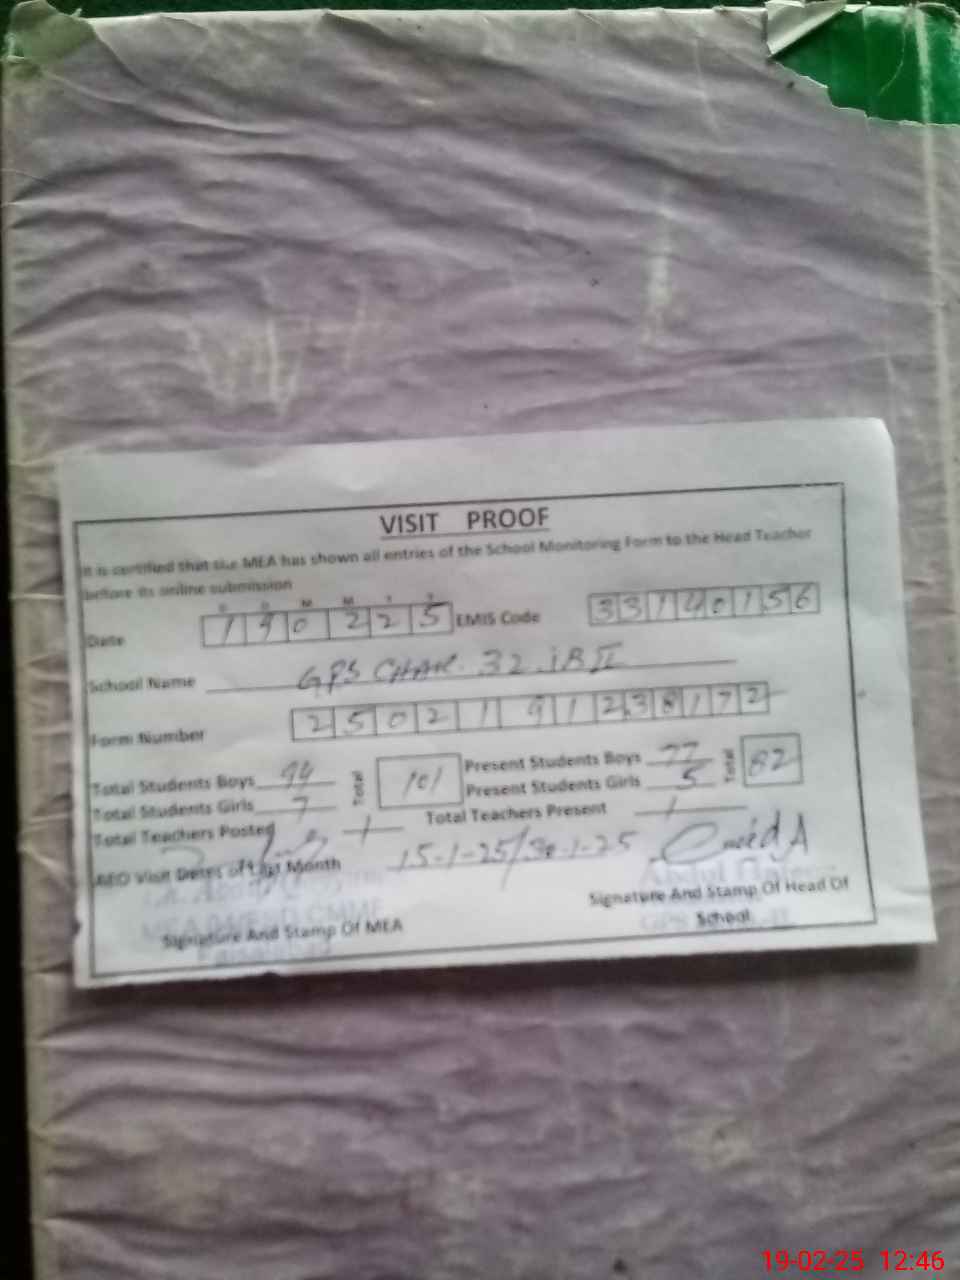 VISIT PROOF
It is certified that the MEA has shown all entries of the School Monitoring Form to the Head Teacher
before its online submission
D D M M Y Y
Date 190225 EMIS Code 33140156
School Name GPS CHAK. 32
Form Number 2502191238172
Total Students Boys 94 Total 101 Present Students Boys 77 Total 82
Total Students Girls 7 Present Students Girls 5
Total Teachers Posted 1 Total Teachers Present 1
AEO Visit Dates of Last Month 15-1-25/30-1-25
Signature And Stamp Of MEA
Signature And Stamp Of Head Of
School
19-02-25 12:46